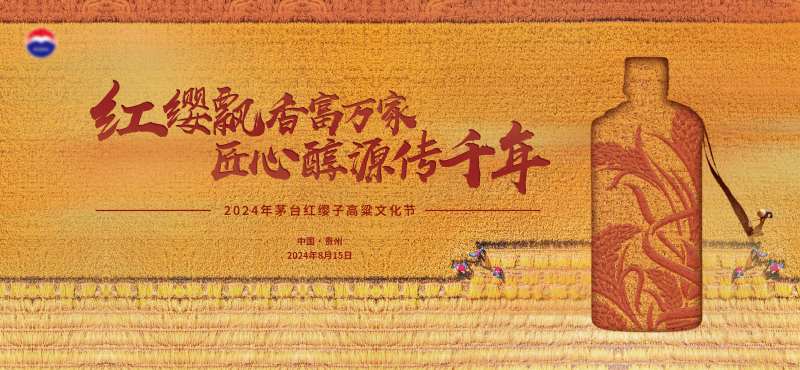 红缨飘香富万家
匠心醇源传千年
2024年茅台红缨子高粱文化节
中国·贵州
2024年8月15日